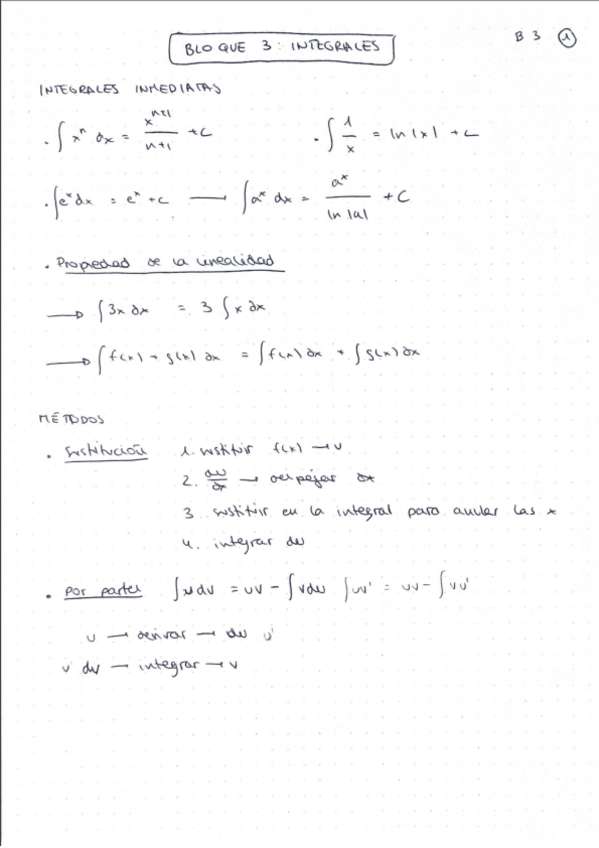 BLOQUE 3: INTEGRALES
B3 ①
INTEGRALES INMEDIATAS
· ∫ xⁿ dx = xⁿ⁺¹/(n+1) + C   · ∫ 1/x = ln |x| + C
· ∫ eˣ dx = eˣ + C — ∫ aˣ dx = aˣ/ln |a| + C
· Propiedad de la linealidad
→ ∫ 3x dx = 3 ∫ x dx
→ ∫ f(x) + g(x) dx = ∫ f(x) dx + ∫ g(x) dx
MÉTODOS
· Sustitución 1. sustituir f(x) → u
2. du/dx → despejar dx
3 sustituir en la integral para anular las x
4. integrar du
· Por partes ∫ u dv = uv - ∫ v du ∫ uv' = uv - ∫ vu'
u → derivar → du u'
v' dv → integrar → v